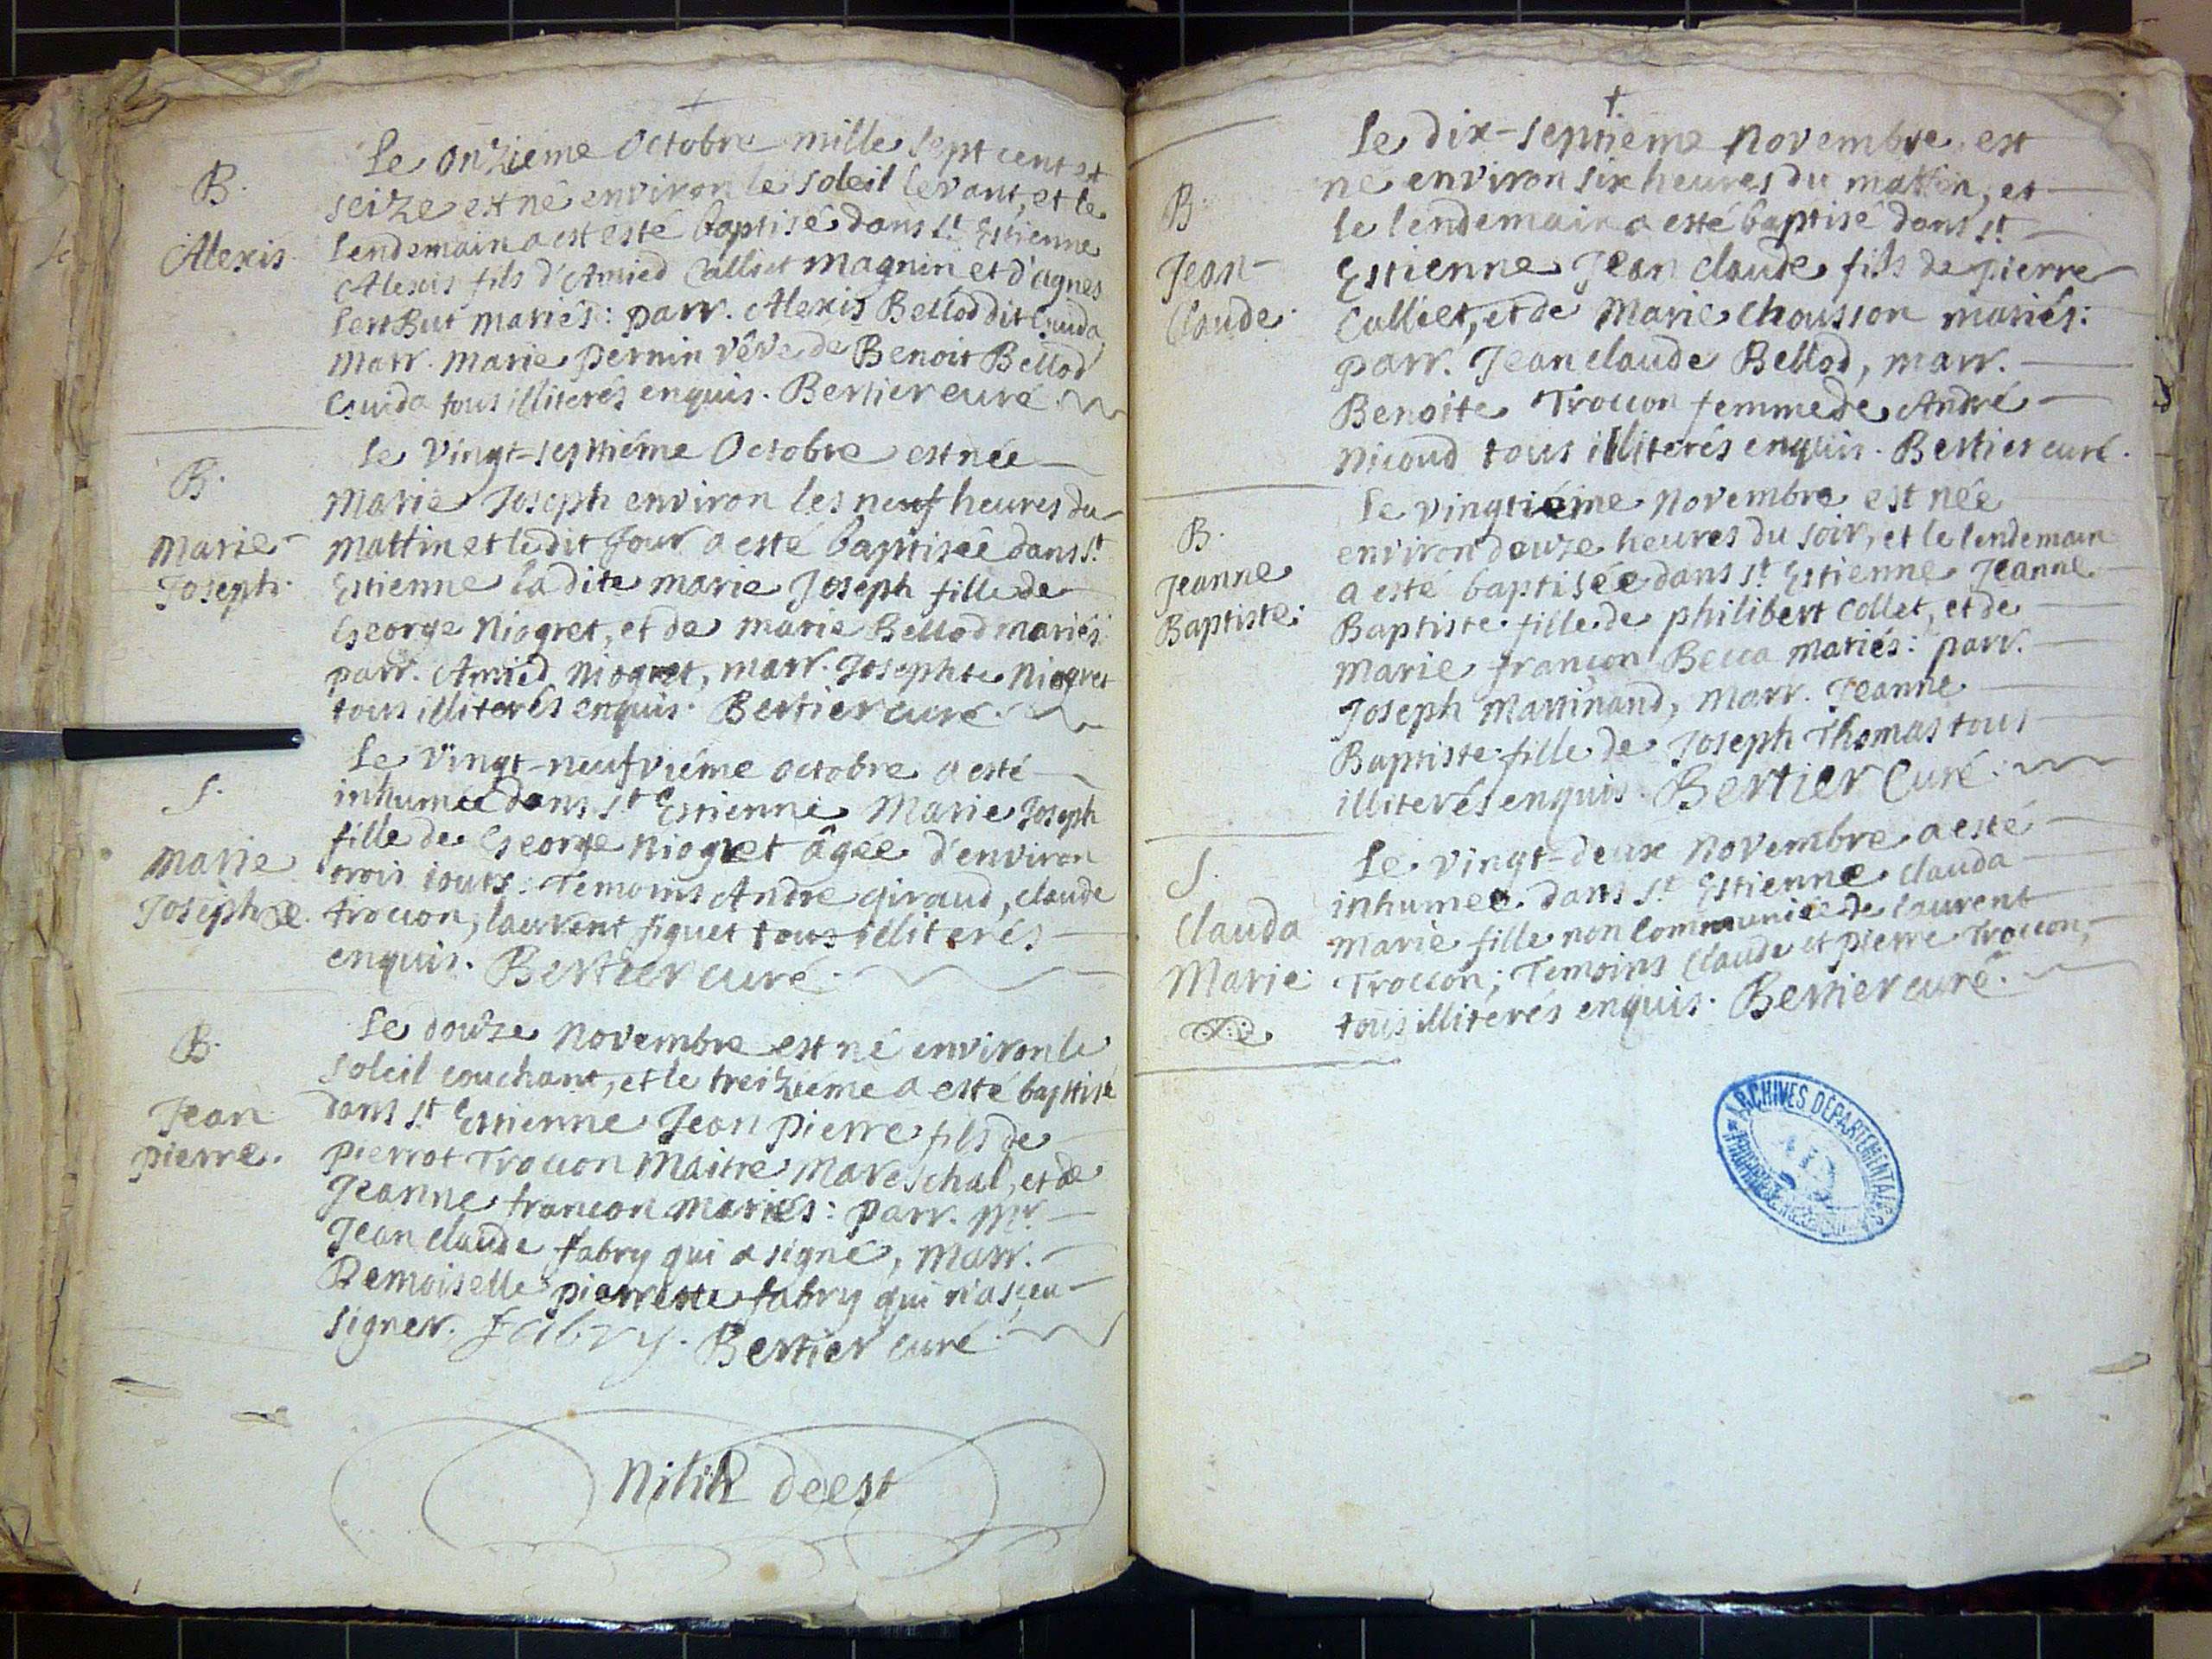 Le Onzieme Octobre mille sept cent et
B.
seize est né environ le soleil levant, et le
lendemain a est esté baptisé dans St Estienne
Alexis
Alexis fils d'Amied Calliet Magnin et d'agnes
mariés: parr. Alexis Bellod dit Guida
Marr. Marie Pernin vêve de Benoit Bellod
Guida tous illiterés enquis. Bertier curé.
Le Vingt-septiéme Octobre est née
B.
Marie Joseph environ les neuf heures du
Marie
mattin et ledit jour a esté baptisée dans St
Joseph.
Estienne ladite marie Joseph fille de
George Niogret, et de marie Bellod mariés:
parr. Amied Niogret, marr. Josephte Niogret
tous illiterés enquis. Bertier curé.
Le Vingt-neufviéme octobre a esté
S.
inhumée dans St Estienne Marie Joseph
fille de George Niogret âgée d'environ
Marie
trois iours: Temoins Andre giraud, claude
Josephte.
troccon, laurent figuet tous illiterés
enquis. Bertier curé.
Le douze Novembre est né environ le
B.
soleil couchant, et le treiziéme a esté baptisé
Jean
dans St Estienne Jean Pierre fils de
pierre.
pierrot Troccon Maitre Mareschal, et de
Jeanne francon Mariés: parr. Mr.
Jean claude fabry qui a signé, Marr.
Demoiselle pierrette fabry qui n'a sçeu
signer. Fabry. Bertier curé.
Nihil deest
Le dix-septieme Novembre est
né environ six heures du mattin, et
B.
le lendemain a esté baptisé dans St
Jean-
Estienne Jean claude fils de pierre
Claude.
Calliet, et de Marie chousson mariés:
parr. Jean claude Bellod, marr.
Benoite Troccon femme de André
Nicoud tous illiterés enquis. Bertier curé.
Le vingtiéme Novembre est née
B.
environ douze heures du soir, et le lendemain
Jeanne
a esté baptisée dans St Estienne Jeanne
Baptiste:
Baptiste fille de philibert Collet, et de
Marie françon Becca mariés: parr.
Joseph Martinand, Marr. Jeanne
Baptiste fille de Joseph Thomas tous
illiterés enquis. Bertier Curé.
Le vingt-deux Novembre a esté
S.
inhumee dans St Estienne clauda
Clauda
Marie fille non communiée de laurent
Marie
Troccon; Temoins Claude et pierre Troccon,
tous illiterés enquis. Bertier curé.
ARCHIVES DÉPARTEMENTALES